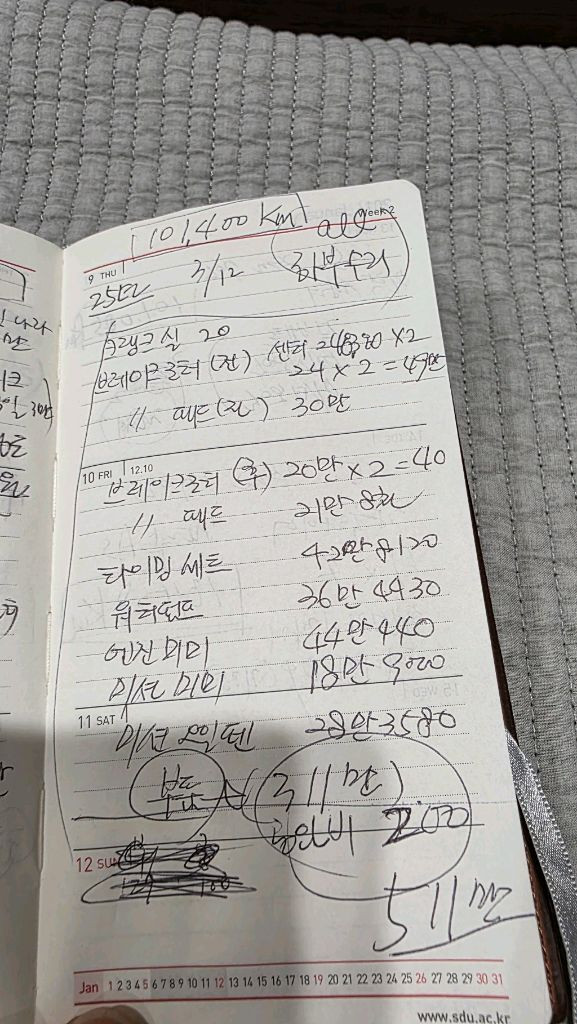 101,400 km
all week 2
9 THU
3/12
하부수리
크랭크실 20
브레이크로터 (전) 센터 ×2
24 × 2 = 49만
〃 패드 (전) 30만
10 FRI 12.10
브레이크로터 (후) 20만 × 2 = 40
〃 패드 21만
타이밍세트 42만 8120
워터펌프 36만 4430
엔진미미 44만 440
미션미미 18만 9000
11 SAT
미션오일팬 28만 3580
부품 311만
공임비 200
12 SUN
511만
Jan 1 2 3 4 5 6 7 8 9 10 11 12 13 14 15 16 17 18 19 20 21 22 23 24 25 26 27 28 29 30 31
www.sdu.ac.kr